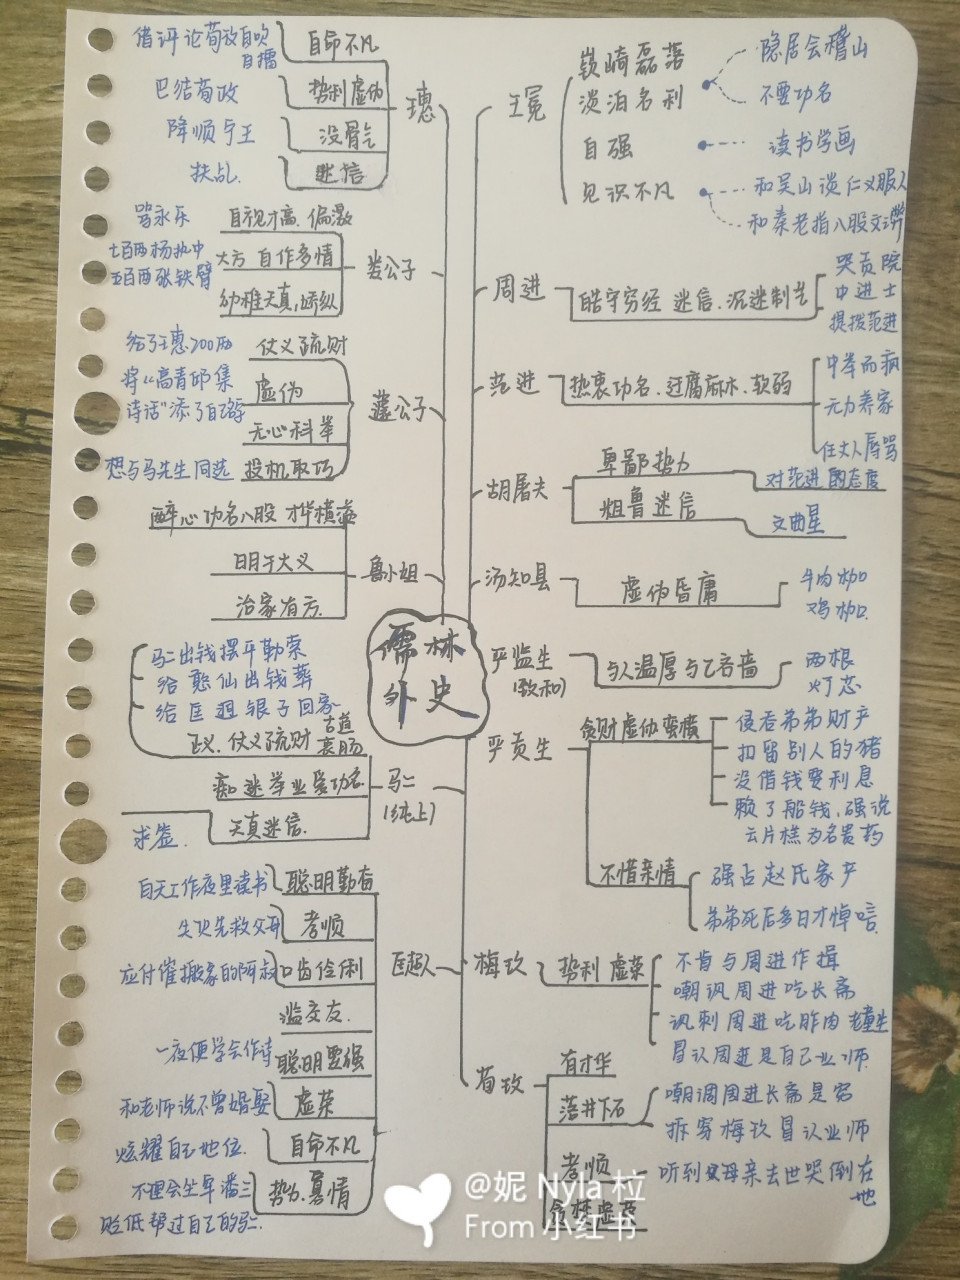 儒林
外史
王冕
嵚崎磊落
淡泊名利
隐居会稽山
不要功名
自强
读书学画
见识不凡
和吴山谈仁义服人
和秦老指八股文弊
周进
皓守穷经 迷信、沉迷制艺
哭贡院
中进士
提拨范进
范进
热衷功名、迂腐麻木、软弱
中举而疯
无力养家
任丈人辱骂
胡屠夫
卑鄙势力
对范进的态度
粗鲁迷信
文曲星
汤知县
虚伪昏庸
牛肉枷
鸡枷
严监生
(致和)
与人温厚与己吝啬
两根
灯芯
严贡生
贪财虚伪蛮横
侵吞弟弟财产
扣留别人的猪
没借钱要利息
赖了船钱、强说
云片糕为名贵药
不惜亲情
强占赵氏家产
弟弟死后多日才悼唁
梅玖
势利 虚荣
不肯与周进作揖
嘲讽周进吃长斋
讽刺周进吃胙肉 老童生
冒认周进是自己业师
荀玫
有才华
落井下石
嘲调周进长斋是穷
拆穿梅玖冒认业师
孝顺
听到母亲去世哭倒在
地
王惠
自命不凡
借评论荀玫自吹
自擂
势利虚伪
巴结荀政
没骨气
降顺宁王
迷信
扶乩
娄公子
自视才高、偏激
骂永乐
大方 自作多情
七百两杨执中
五百两张铁臂
幼稚天真,骄纵
蘧公子
仗义疏财
给了王惠200两
虚伪
将《高青邱集
诗话》添了自己名
无心科举
投机取巧
想与马先生同选
鲁小姐
醉心功名八股 才华横溢
明于大义
治家有方
马二
(纯上)
马二出钱摆平勒索
给憨仙出钱葬
给匡迥银子回家
正义、仗义疏财 古道
衷肠
痴迷举业爱功名
天真迷信
求签
匡超人
聪明勤奋
白天工作夜里读书
孝顺
失火先救父母
口齿伶俐
应付催搬家的阿叔
滥交友
聪明要强
一夜便学会作诗
虚荣
和老师说不曾婚娶
自命不凡
炫耀自己地位
势力、寡情
不理会坐牢潘三
贬低帮过自己的马二
@妮 Nyla 柆
From 小红书